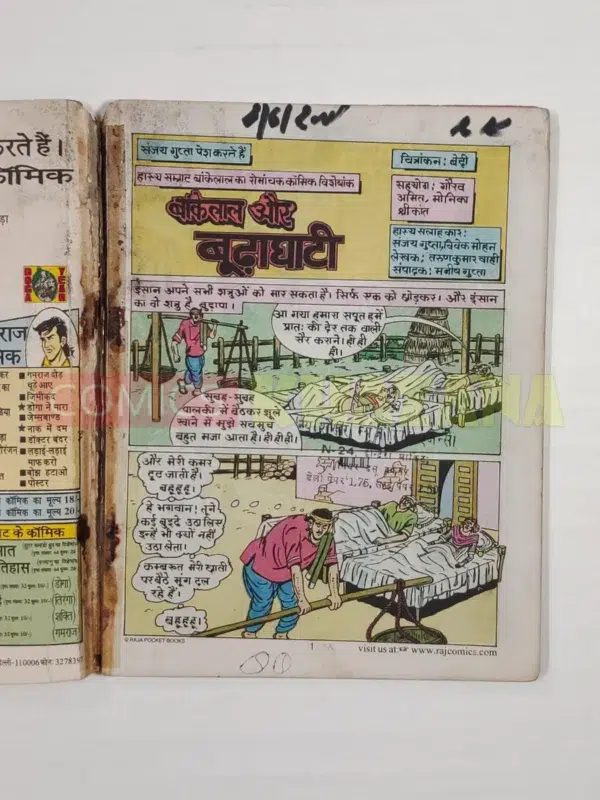 रते हैं।
कॉमिक
DOGA
YEAR
मराज
मिक
गमराज दौड़
घुड़े आए
जिमीकंद
डोगा ने मारा
जेम्सबाण्ड
नाक में दम
डॉक्टर बंदर
लड़ाई-लड़ाई
माफ करो
बोझ हटाओ
पोस्टर
कॉमिक का मूल्य 18
कॉमिक का मूल्य 20
ट के कॉमिक
डोगा
तिरंगा
शक्ति
गमराज
ल्ली-110006 फोन: 3278397
संजय गुप्ता पेश करते हैं
चित्रांकन: बेदी
हास्य सम्राट बांकेलाल का रोमांचक कॉमिक विशेषांक
सहयोग: गौरव
अमित, मोनिका
श्रीकांत
बांकेलाल और
बूढ़ाघाटी
हास्य सलाहकार:
संजय गुप्ता, विवेक मोहन
लेखक: तरुणकुमार वाही
संपादक: मनीष गुप्ता
इंसान अपने सभी शत्रुओं को मार सकता है। सिर्फ एक को छोड़कर। और इंसान
का वो शत्रु है, बुढ़ापा।
आ गया हमारा सपूत हमें
प्रातः की देर तक वाली
सैर कराने। ही ही
ही।
सुबह-सुबह
पालकी में बैठकर झूले
खाने में मुझे सचमुच
बहुत मजा आता है। ही ही ही।
N-24
और मेरी कमर
टूट जाती है।
बहूहूहू।
हे भगवान! तूने
कई बुड्ढे उठा लिए
इन्हें भी क्यों नहीं
उठा लेता।
कम्बख्त मेरी छाती
पर बैठे मूंग दल
रहे हैं।
बहूहूहू।
© RAJA POCKET BOOKS
1
visit us at www.rajcomics.com